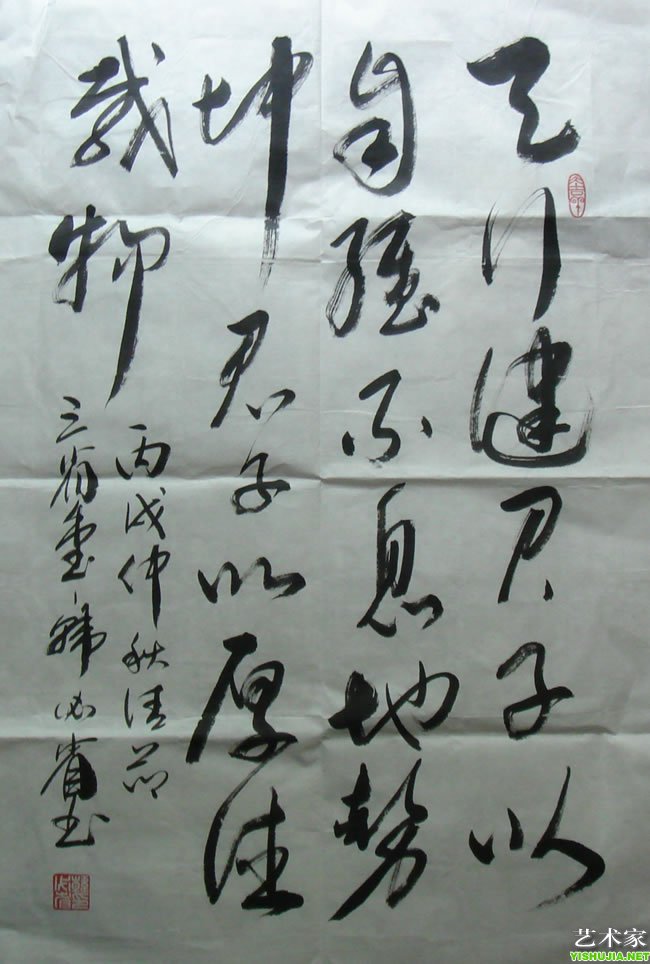 天行健君子以
自强不息地势
坤君子以厚德
载物
丙戌仲秋佳节
三省堂韩必
艺术家
YISHUJIA.NET